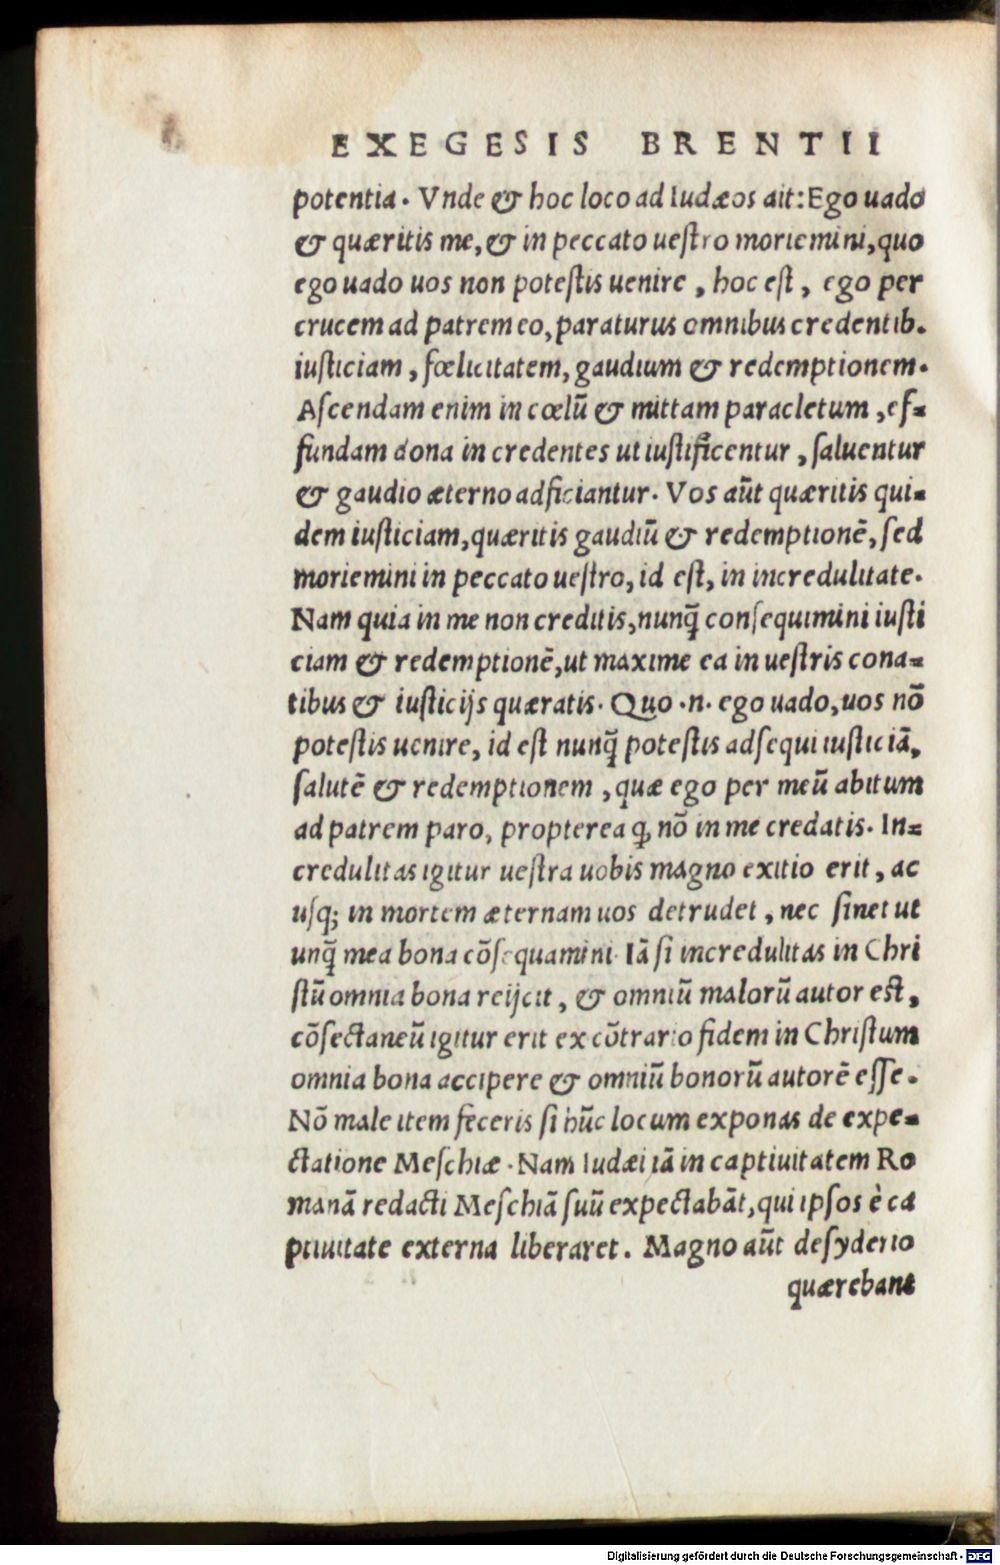 EXEGESIS BRENTII
potentia. Vnde & hoc loco ad Iudæos ait: Ego uado
& quæritis me, & in peccato ueſtro moriemini, quo
ego uado uos non poteſtis uenire, hoc eſt, ego per
crucem ad patrem eo, paraturus omnibus credentib.
iuſticiam, fœlicitatem, gaudium & redemptionem.
Aſcendam enim in cœlū & mittam paracletum, ef⸗
fundam dona in credentes ut iuſtificentur, ſaluentur
& gaudio æterno adficiantur. Vos aūt quæritis qui⸗
dem iuſticiam, quæritis gaudiū & redemptionē, ſed
moriemini in peccato ueſtro, id eſt, in incredulitate.
Nam quia in me non creditis, nunq̃ conſequimini iuſti
ciam & redemptionē, ut maxime ea in ueſtris cona⸗
tibus & iuſticijs quæratis. Quo .n. ego uado, uos nō
poteſtis uenire, id eſt nunq̃ poteſtis adſequi iuſticiā,
ſalutē & redemptionem, quæ ego per meū abitum
ad patrem paro, propterea ꝙ nō in me credatis. In⸗
credulitas igitur ueſtra uobis magno exitio erit, ac
uſq; in mortem æternam uos detrudet, nec ſinet ut
unq̃ mea bona cōſequamini. Iā ſi incredulitas in Chri
ſtū omnia bona reijcit, & omniū malorū autor eſt,
cōſectaneū igitur erit ex cōtrario fidem in Chriſtum
omnia bona accipere & omniū bonorū autorē eſſe.
Nō male item feceris ſi hūc locum exponas de expe⸗
ctatione Meſchiæ. Nam Iudæi iā in captiuitatem Ro
manā redacti Meſchiā ſuū expectabāt, qui ipſos è ca
ptiuitate externa liberaret. Magno aūt deſyderio
quærebant
Digitalisierung gefördert durch die Deutsche Forschungsgemeinschaft - DFG